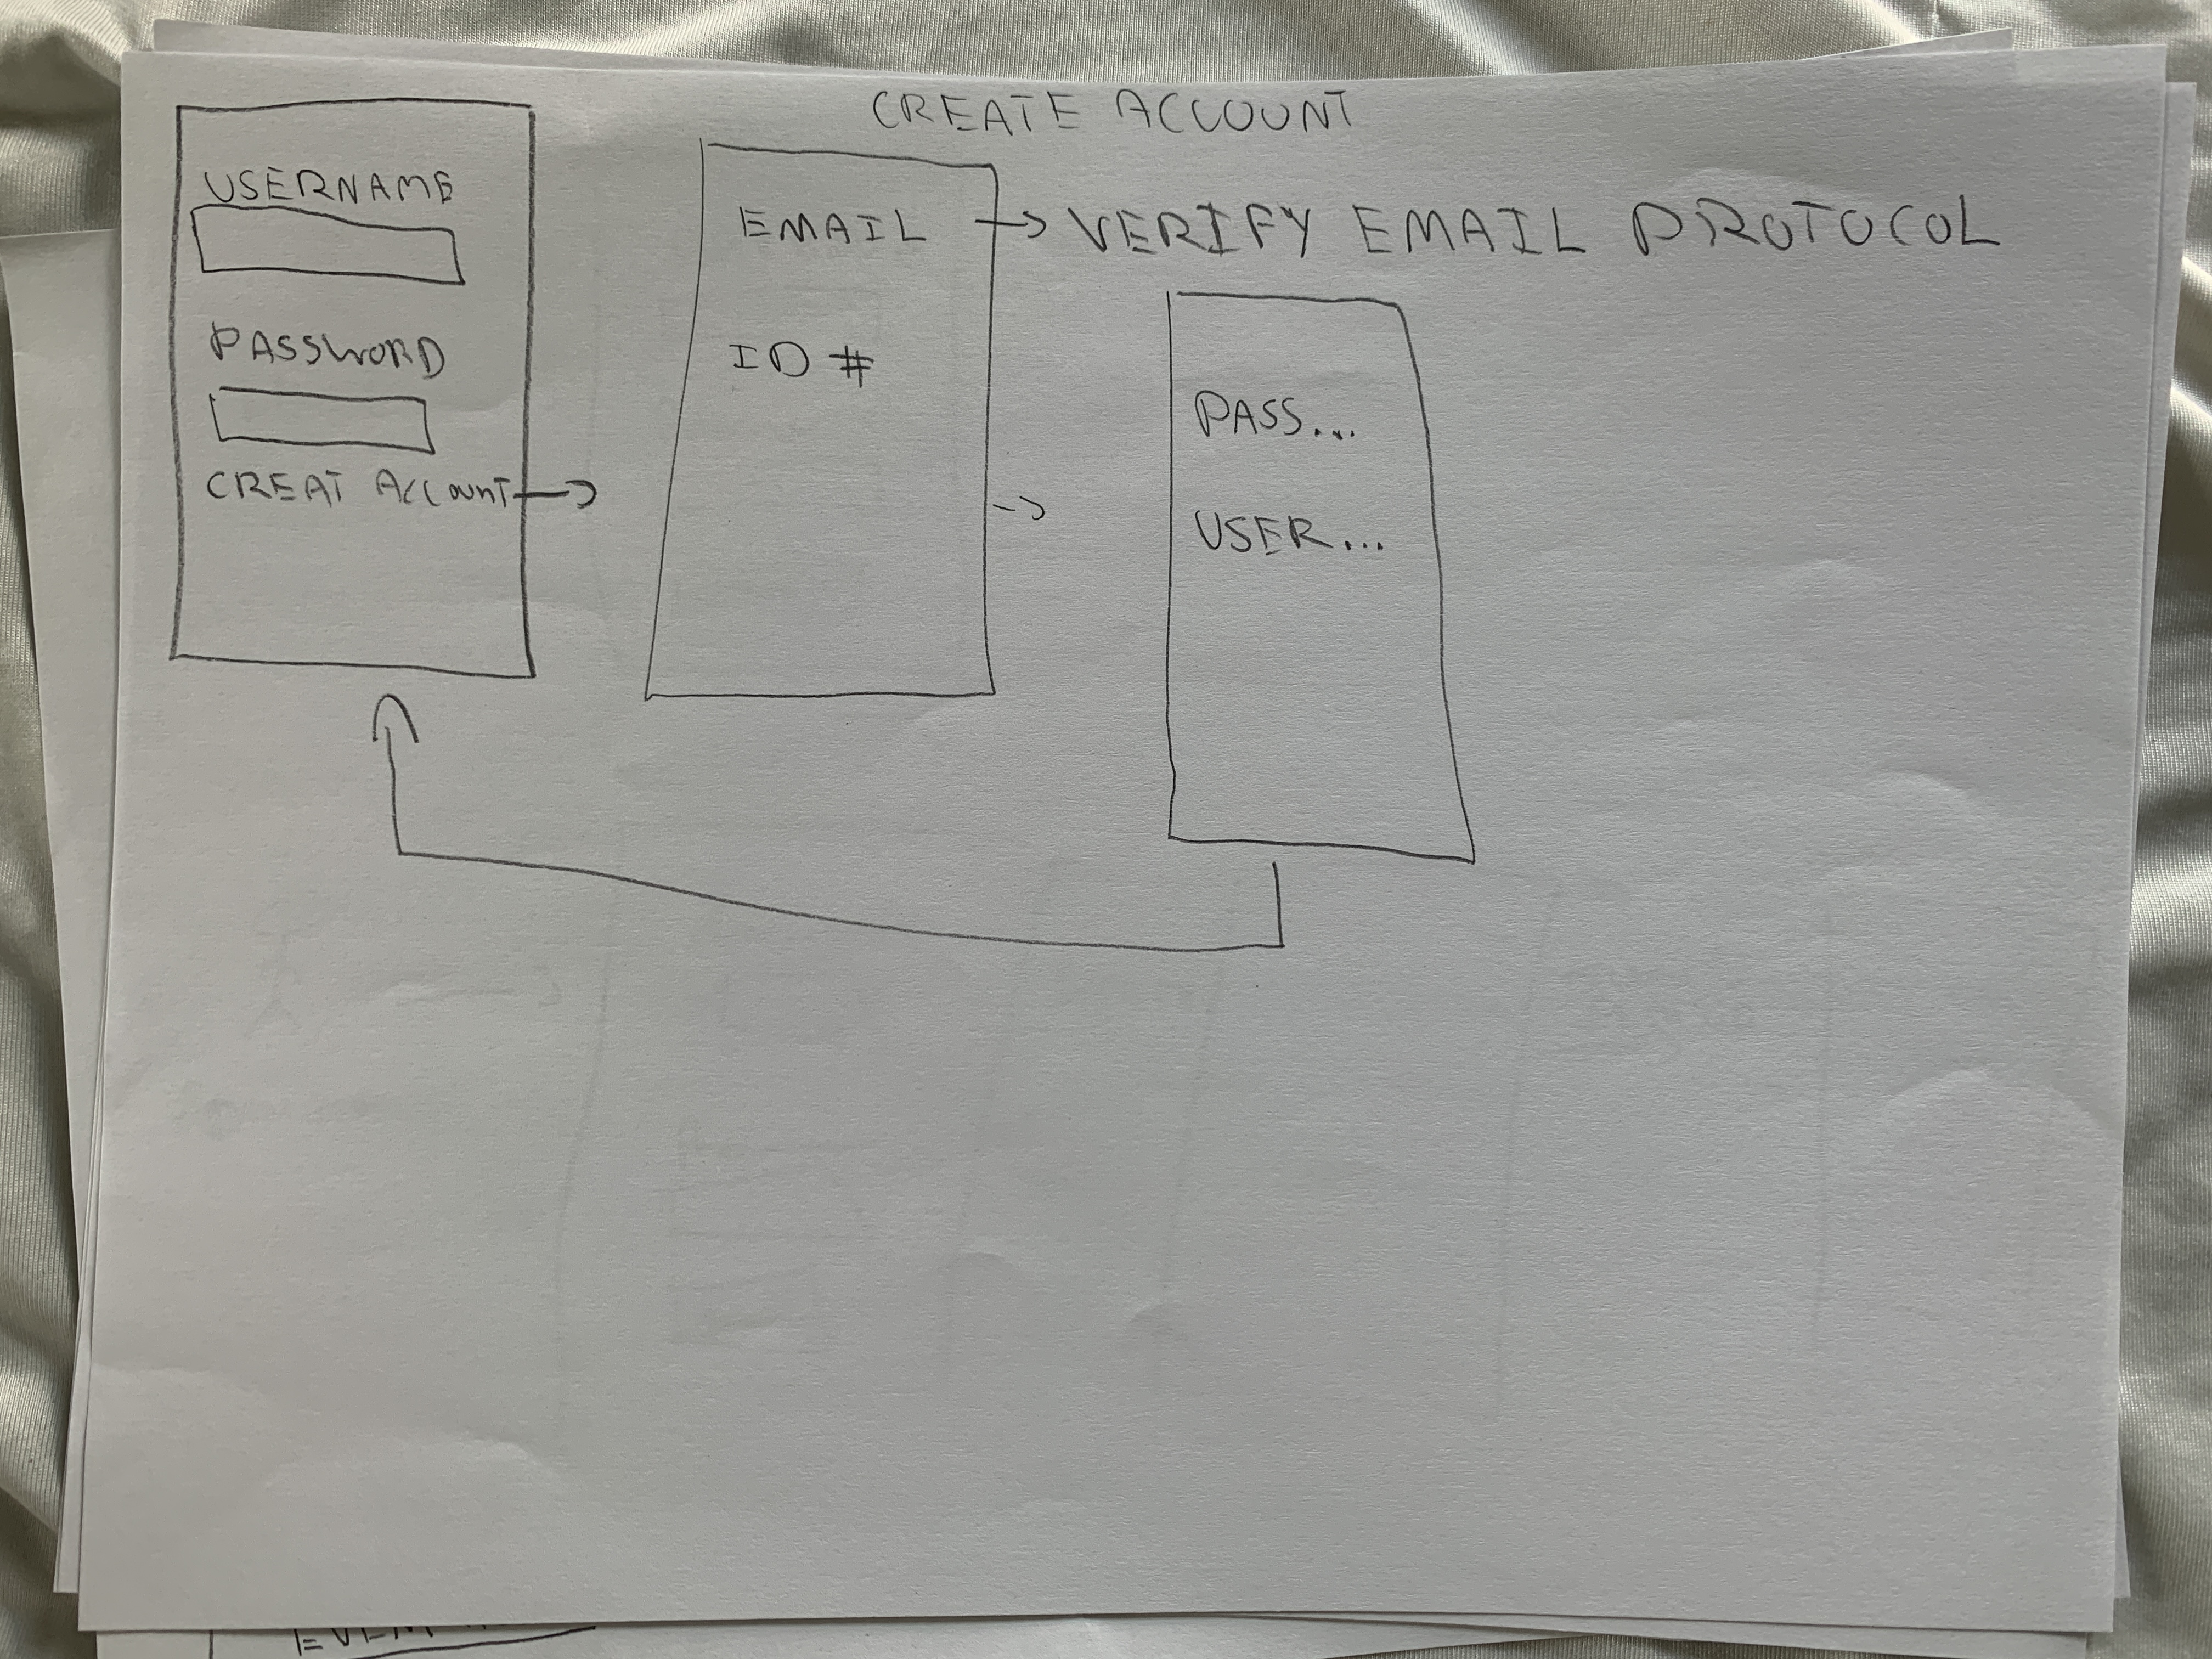 CREATE ACCOUNT
USERNAME
PASSWORD
CREAT ACCOUNT
EMAIL
ID #
VERIFY EMAIL PROTOCOL
PASS...
USER...